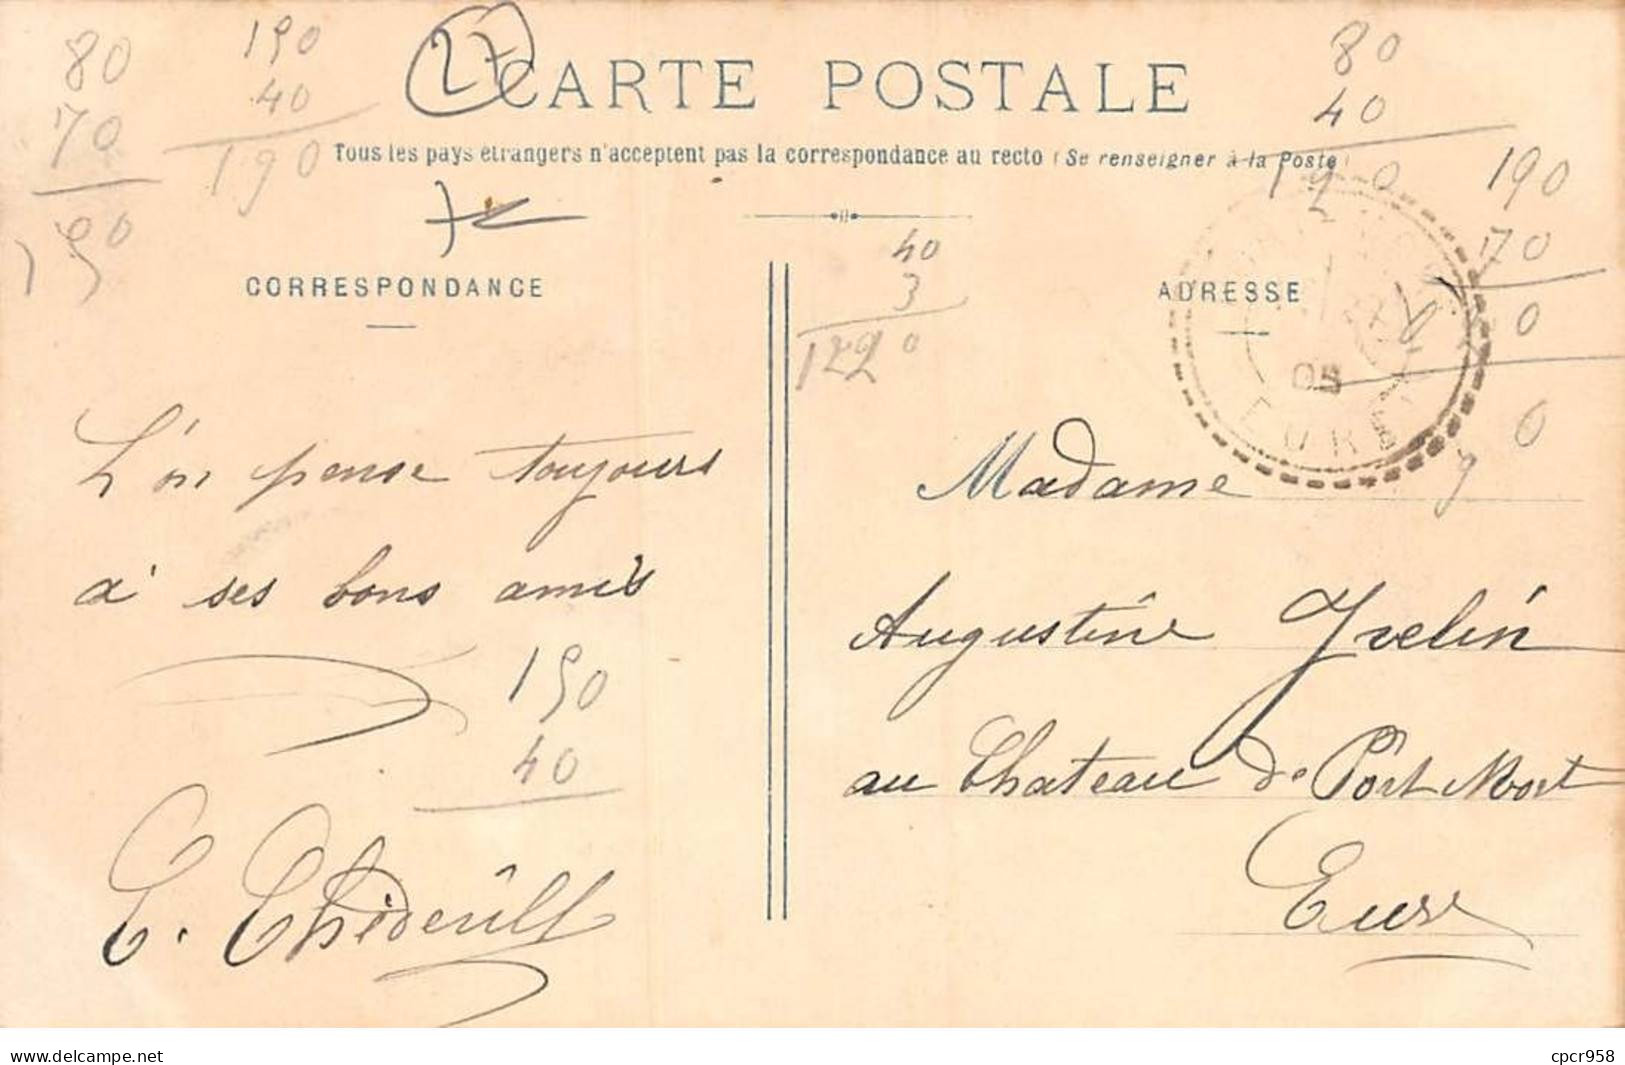 27
CARTE POSTALE
Tous les pays étrangers n'acceptent pas la correspondance au recto (Se renseigner à la Poste)
80
70
150
150
40
190
80
40
120
190
70
0
0
9
40
3
1220
CORRESPONDANCE
ADRESSE
05
EURE
L'on pense toujours
à ses bons amis
150
40
Madame
Augustine Yvelin
au Chateau de Port Mort
Eure
delcampe.net
cpcr958